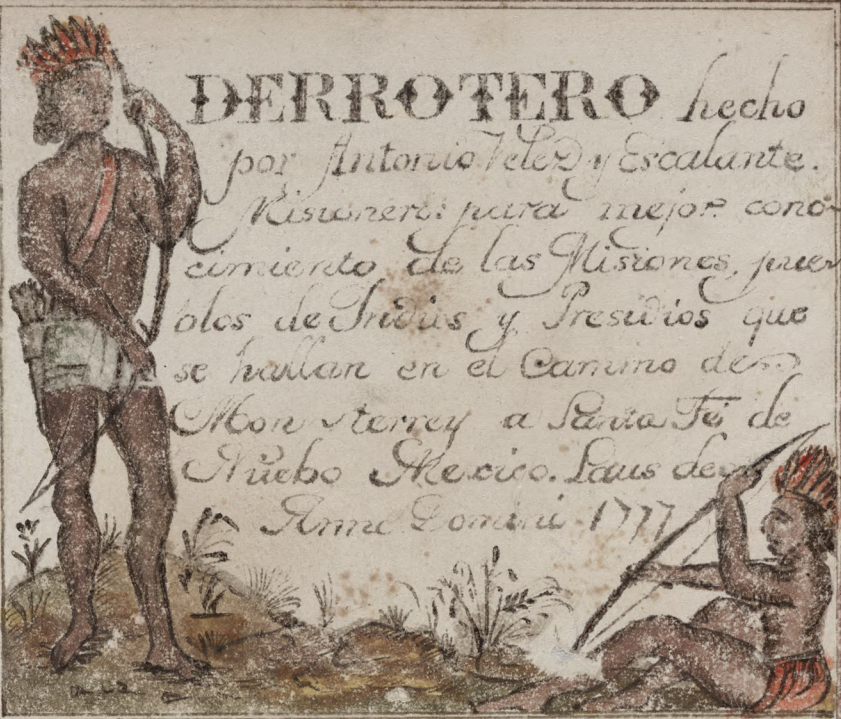 DERROTERO hecho
por Antonio Velez y Escalante.
Misionero: para mejor cono-
cimiento de las Misiones, pue-
blos de Indios y Presidios que
se hallan en el Camino de
Monterrey a Santa Fé de
Nuebo Mexico. Laus deo
Anno Domini 1777